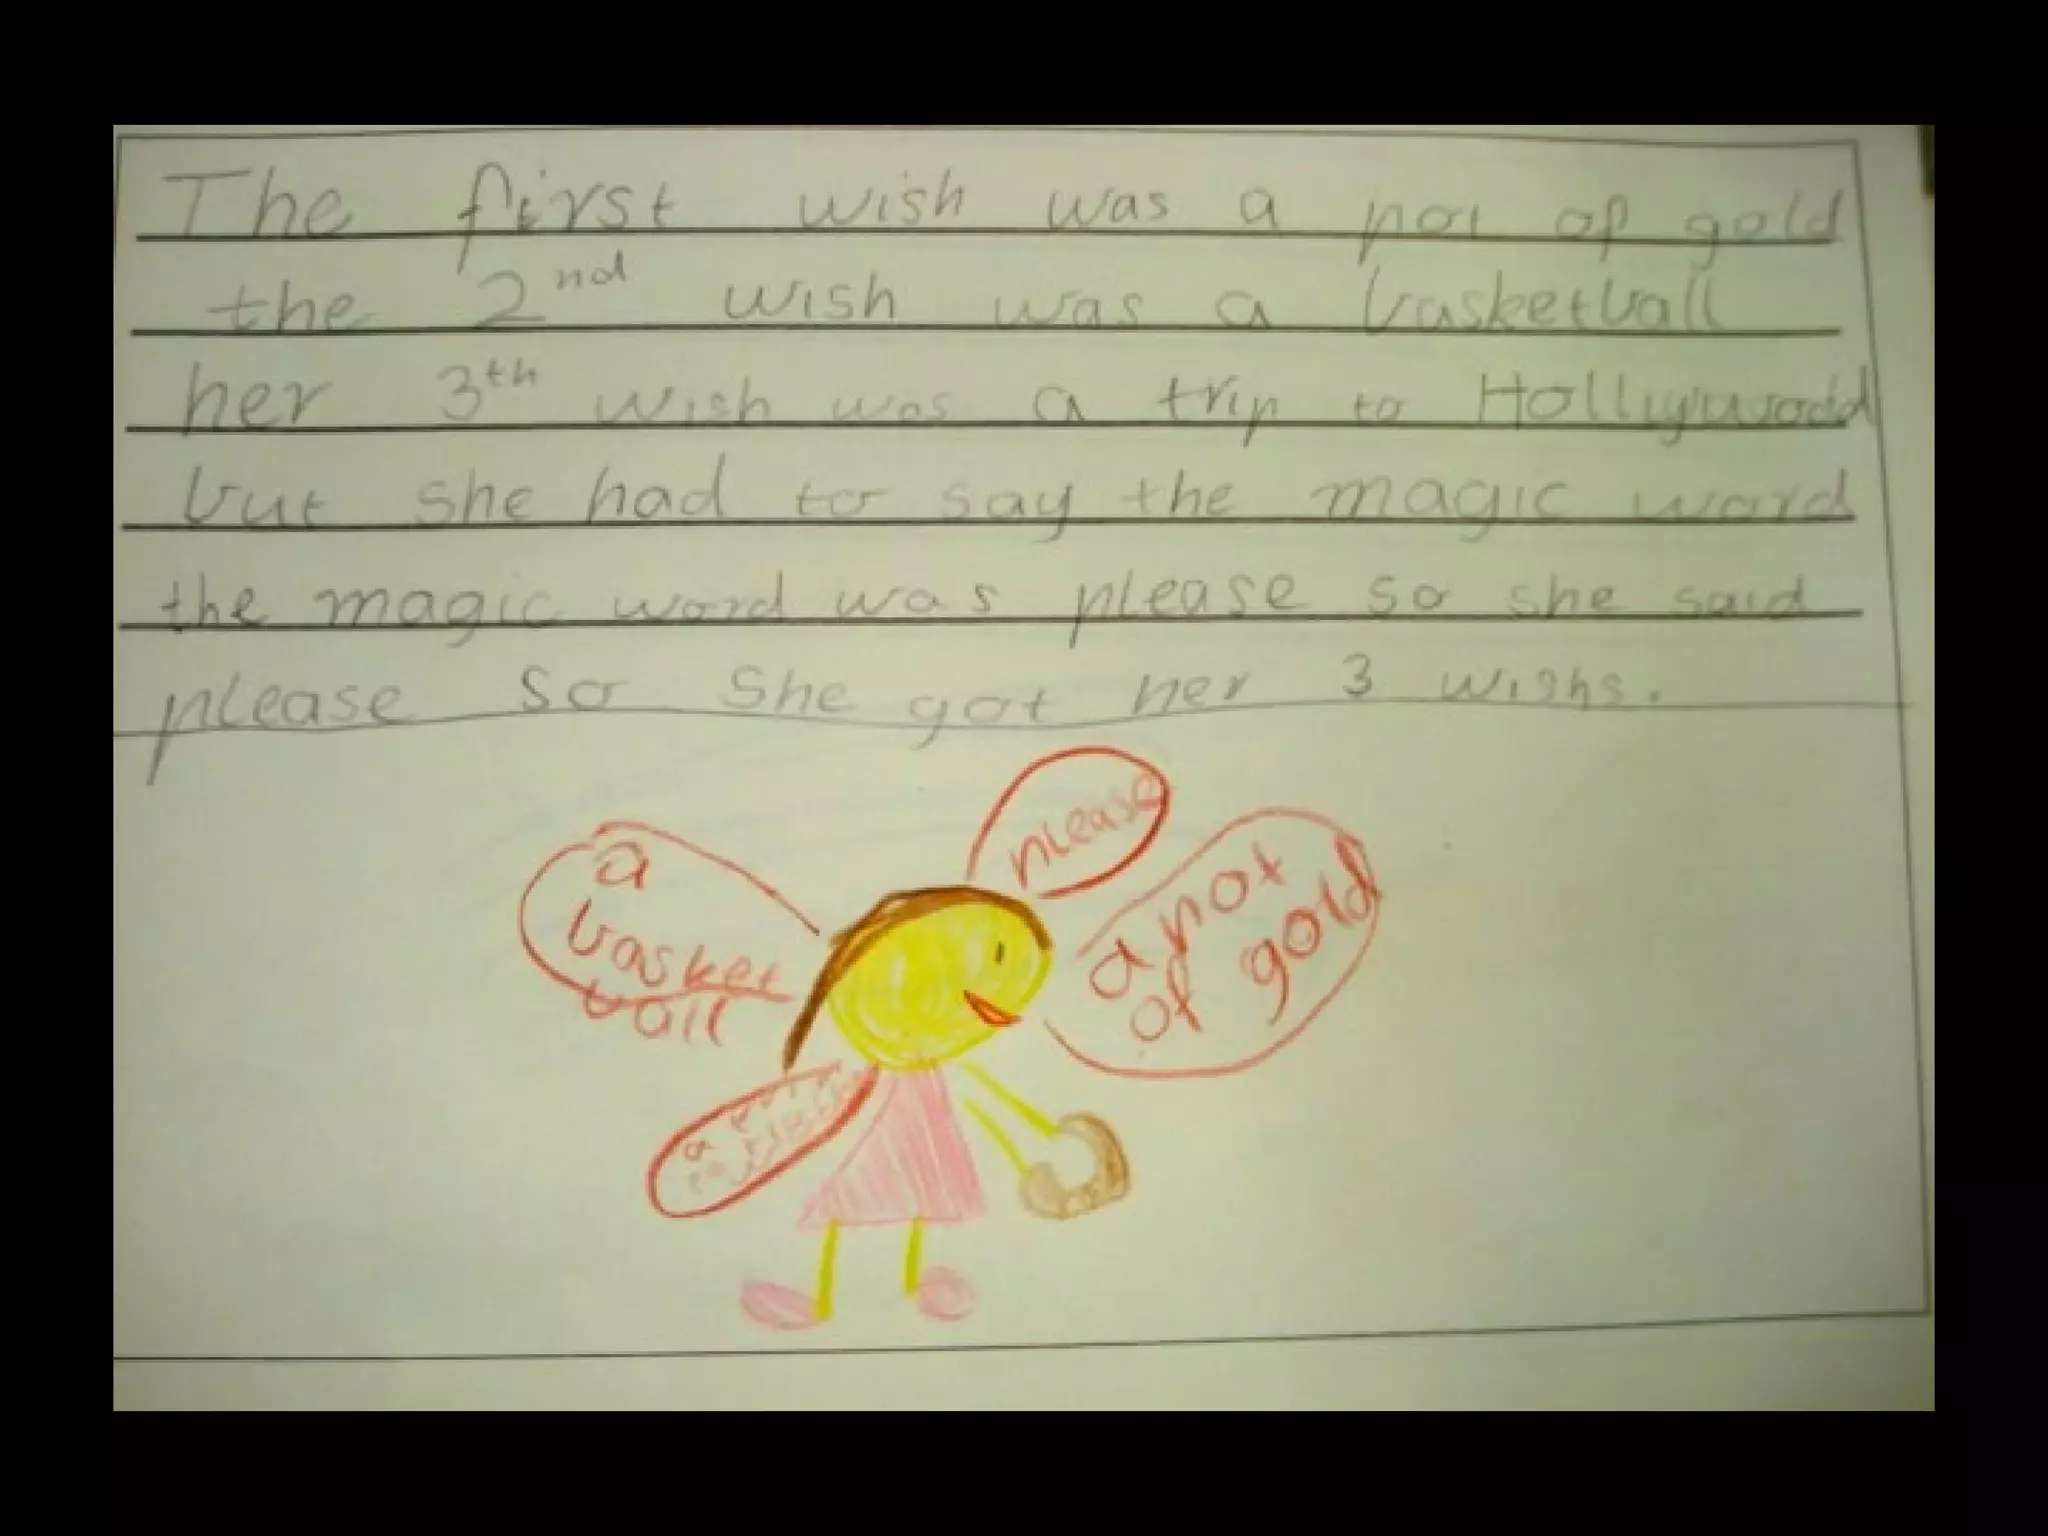 The first wish was a pot of gold
the 2nd wish was a basketball
her 3th wish was a trip to Hollywood
but she had to say the magic word
the magic word was please so she said
please so she got her 3 wishs.
please
a
basket
ball
a pot
of gold
a